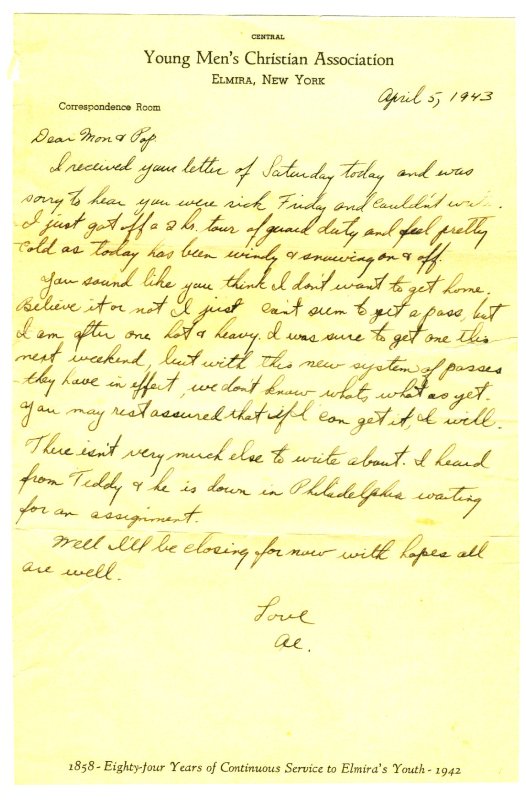 CENTRAL
Young Men's Christian Association
ELMIRA, NEW YORK
Correspondence Room
April 5, 1943
Dear Mom & Pop.
I received your letter of Saturday today and was
sorry to hear you were sick Friday and couldn't write.
I just got off a 2 hr. tour of guard duty and feel pretty
cold as today has been windy & snowing on & off.
You sound like you think I don't want to get home.
Believe it or not I just can't seem to get a pass, but
I am after one hot & heavy. I was sure to get one this
next weekend, but with this new system of passes
they have in effect, we don't know whats what as yet.
You may rest assured that if I can get it, I will.
There isn't very much else to write about. I heard
from Teddy & he is down in Philadelphia waiting
for an assignment.
Well I'll be closing for now with hopes all
are well.
Love
Al.
1858 - Eighty-four Years of Continuous Service to Elmira's Youth - 1942